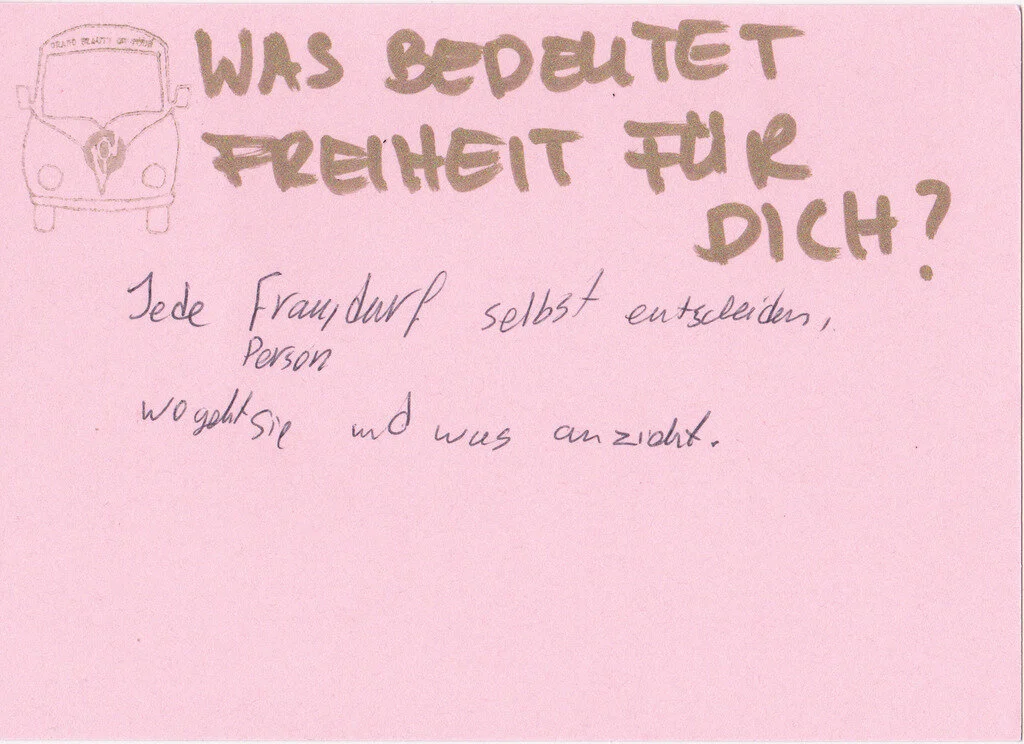 GRAND BEAUTY ON TOUR
WAS BEDEUTET
FREIHEIT FÜR
DICH?
Jede Frau, darf selbst entscheiden,
Person
wo geht Sie und was anzieht.